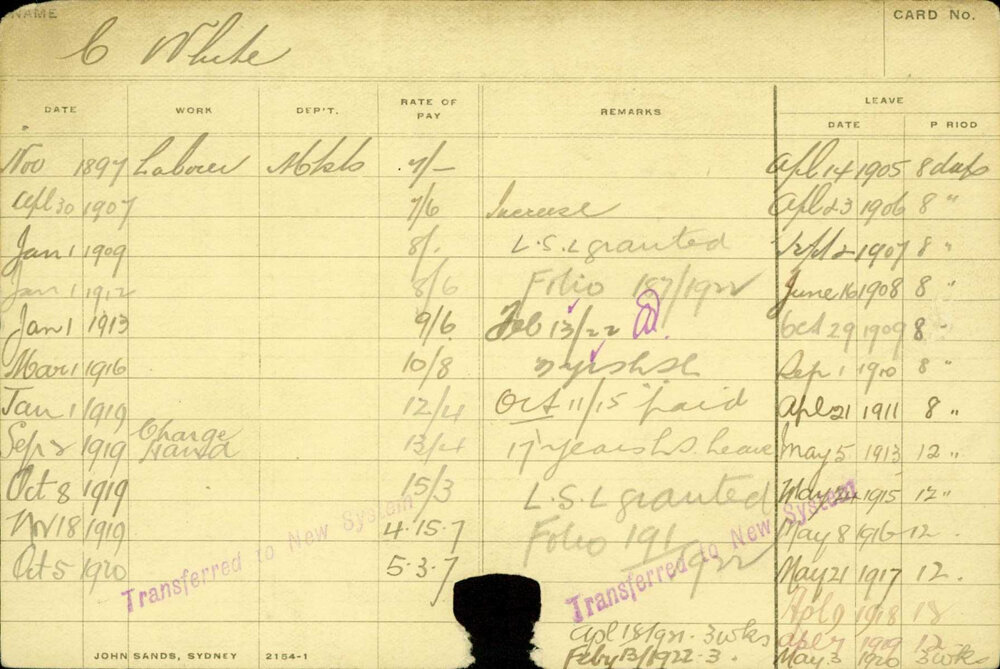 NAME CARD No.
C White
DATE WORK DEP'T. RATE OF PAY REMARKS LEAVE
DATE P RIOD
Nov 1897 Labourer Mkts 7/- Apl 14 1905 8 days
Apl 30 1907 7/6 Increase Apl 23 1906 8 "
Jan 1 1909 8/- L.S.L granted Sept 2 1907 8 "
Jan 1 1912 8/6 Folio 187/1922 June 16 1908 8 "
Jan 1 1913 9/6 Feb 13/22 Oct 29 1909 8 "
Mar 1 1916 10/8 Sep 1 1910 8 "
Jan 1 1919 12/4 Oct 11/15 paid Apl 21 1911 8 "
Sep 2 1919 Charge Hand 13/4 17 years L.S. leave May 5 1913 12 "
Oct 8 1919 15/3 L.S.L granted May 24 1915 12 "
Nov 18 1919 4.15.7 Folio 191/1922 May 8 1916 12.
Oct 5 1920 5.3.7 May 21 1917 12.
Transferred to New System
Transferred to New System
Apl 9 1918 12
Apl 18/1921. 3 wks Apl 7 1919 12
Feby 13/1922. 3. May 3 1920 3 wks
JOHN SANDS, SYDNEY 2154-1